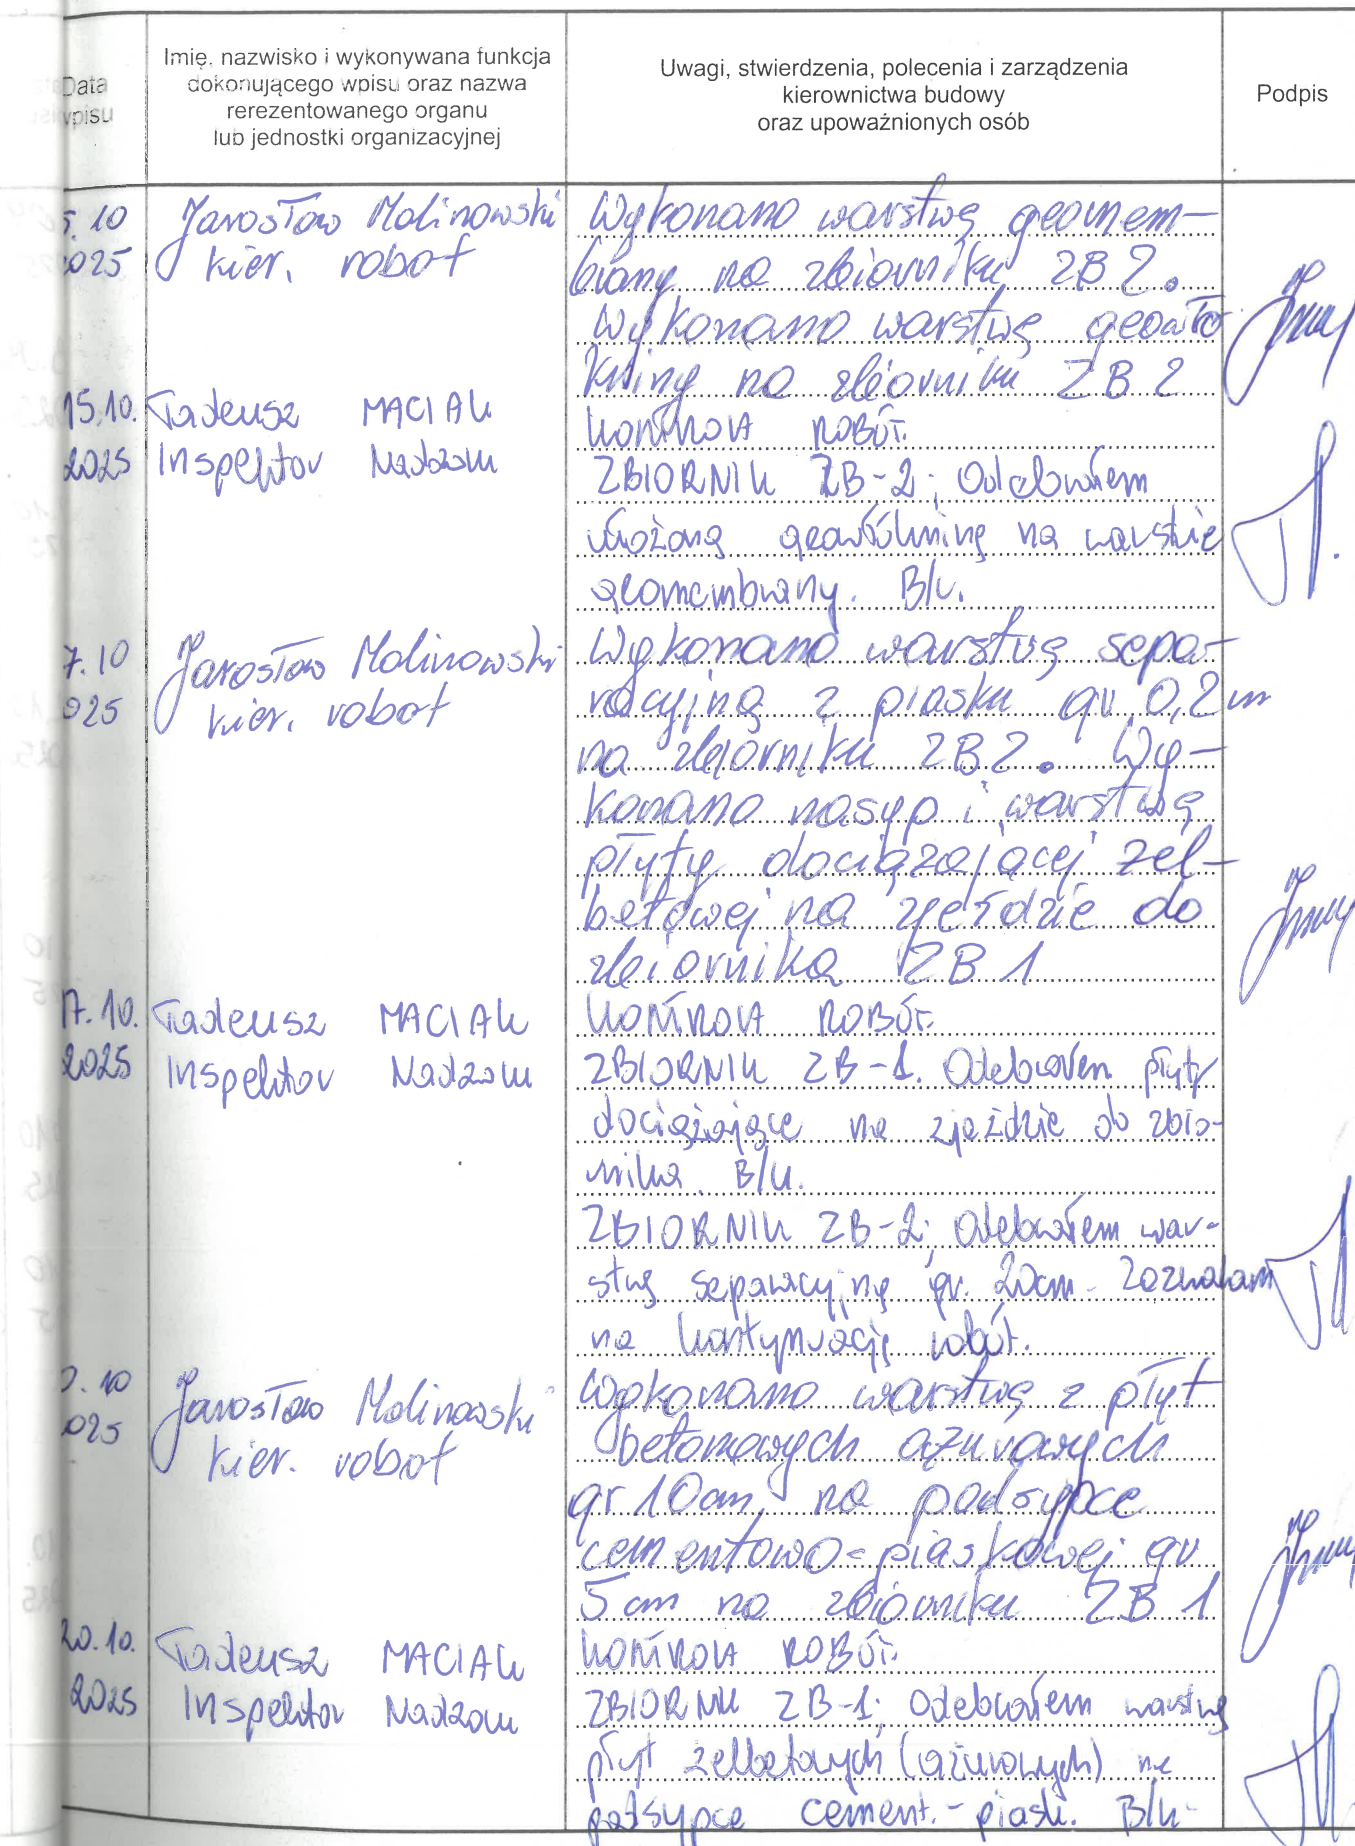 Data
wpisu
Imię, nazwisko i wykonywana funkcja
dokonującego wpisu oraz nazwa
rerezentowanego organu
lub jednostki organizacyjnej
Uwagi, stwierdzenia, polecenia i zarządzenia
kierownictwa budowy
oraz upoważnionych osób
Podpis
5.10
025
Jarosław Molinowski
kier. robot
Wykonano warstwę geomem-
brany na zbiorniku ZB2.
Wykonano warstwę geowłó
kniny na zbiorniku ZB2
15.10.
2025
Tadeusz MACIAK
Inspektor Nadzoru
KONTROLA ROBÓT.
ZBIORNIK ZB-2; Odebrałem
ułożoną geowłókninę na warstwie
geomembrany. B/u.
7.10
025
Jarosław Molinowski
kier. robot
Wykonano warstwę sepa-
racyjną z piasku gr 0,2m
na zbiorniku ZB2. Wy-
konano nasyp i warstwę
płyty dociążającej żel-
betowej na zjeździe do
zbiornika ZB1
17.10.
2025
Tadeusz MACIAK
Inspektor Nadzoru
KONTROLA ROBÓT.
ZBIORNIK ZB-1. Odebrałem płyty
dociążające na zjeździe do zbio-
rnika. B/u.
ZBIORNIK ZB-2; Odebrałem war-
stwę separacyjną gr. 20cm. Zezwalam
na kontynuację robót.
0.10
025
Jarosław Molinowski
kier. robot
Wykonano warstwę z płyt
betonowych ażurowych
gr 10cm, na podsypce
cementowo-piaskowej gr
5cm na zbiorniku ZB1
20.10.
2025
Tadeusz MACIAK
Inspektor Nadzoru
KONTROLA ROBÓT.
ZBIORNIK ZB-1; Odebrałem warstwę
płyt żelbetowych (ażurowych) na
podsypce cement.-piask. B/u-